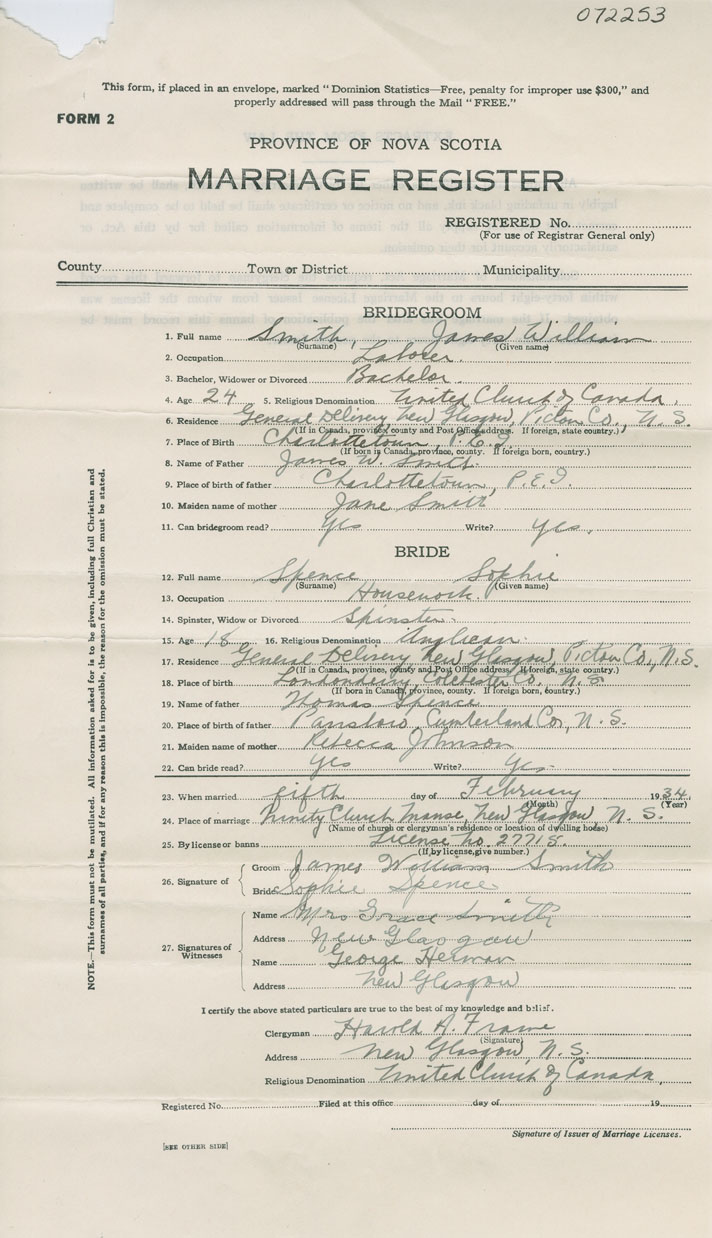 072253
This form, if placed in an envelope, marked "Dominion Statistics—Free, penalty for improper use $300," and
properly addressed will pass through the Mail "FREE."
FORM 2
PROVINCE OF NOVA SCOTIA
MARRIAGE REGISTER
REGISTERED No.
(For use of Registrar General only)
County Town or District Municipality
BRIDEGROOM
1. Full name Smith, James William
(Surname) (Given name)
2. Occupation Laborer.
3. Bachelor, Widower or Divorced Bachelor.
4. Age 24 5. Religious Denomination United Church of Canada.
6. Residence General Delivery New Glasgow, Pictou Co., N.S.
(If in Canada, province, county and Post Office address. If foreign, state country.)
7. Place of Birth Charlottetown, P.E.I.
(If born in Canada, province, county. If foreign born, country.)
8. Name of Father James W. Smith.
9. Place of birth of father Charlottetown, P.E.I.
10. Maiden name of mother Jane Smith
11. Can bridegroom read? Yes Write? Yes.
BRIDE
12. Full name Spence Sophie
(Surname) (Given name)
13. Occupation Housework.
14. Spinster, Widow or Divorced Spinster.
15. Age 18 16. Religious Denomination Anglican.
17. Residence General Delivery New Glasgow, Pictou Co., N.S.
(If in Canada, province, county and Post Office address. If foreign, state country.)
18. Place of birth Londonderry, Colchester Co. N.S.
(If born in Canada, province, county. If foreign born, country.)
19. Name of father Thomas Spence
20. Place of birth of father Parrsboro, Cumberland Co., N.S.
21. Maiden name of mother Rebecca Johnson
22. Can bride read? Yes Write? Yes.
23. When married fifth day of February 1934
(Month) (Year)
24. Place of marriage Trinity Church Manse, New Glasgow N.S.
(Name of church or clergyman's residence or location of dwelling house)
25. By license or banns License no. 27715.
(If by license, give number.)
26. Signature of
Groom James William Smith
Bride Sophie Spence
27. Signatures of Witnesses
Name Mrs Grace Smith
Address New Glasgow
Name George Herman
Address New Glasgow
I certify the above stated particulars are true to the best of my knowledge and belief.
Clergyman Harold A. Frame
(Signature)
Address New Glasgow, N.S.
Religious Denomination United Church of Canada,
Registered No. Filed at this office day of 19
Signature of Issuer of Marriage Licenses.
[SEE OTHER SIDE]
NOTE.—This form must not be mutilated. All information asked for is to be given, including full Christian and
surnames of all parties, and if for any reason this is impossible, the reason for the omission must be stated.